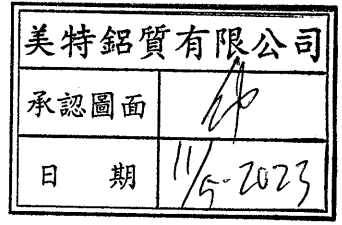 美特鋁質有限公司
承認圖面
日 期 11/5-2023